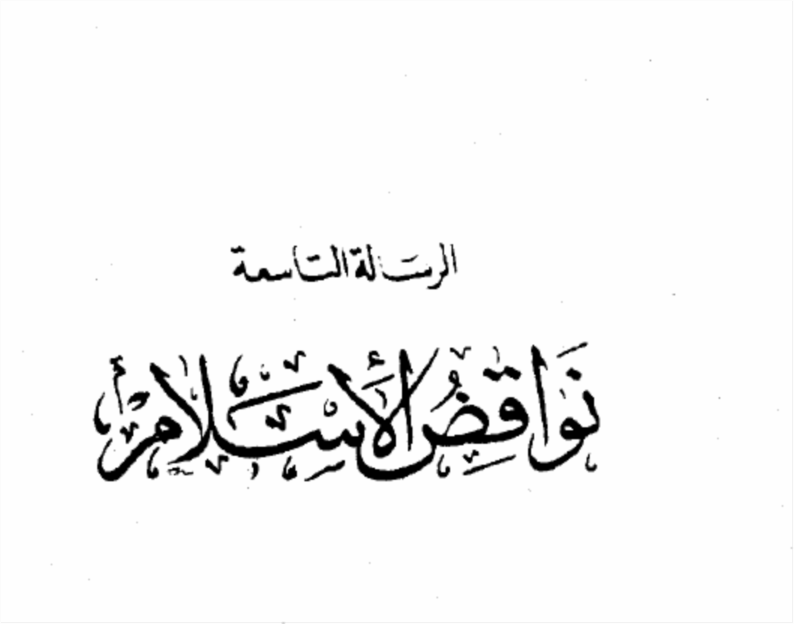 الرسالة التاسعة
نَواقِضُ الأِسْلَامْ